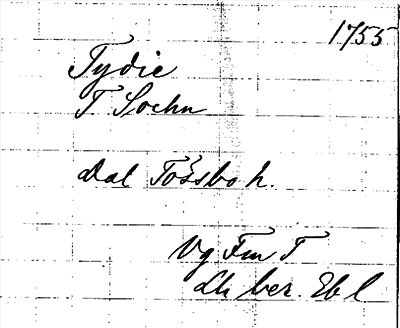 1755
Tydie
T. Soehn
Dal Tössbo h.
Vg Fm T
Lh ber. Ebl